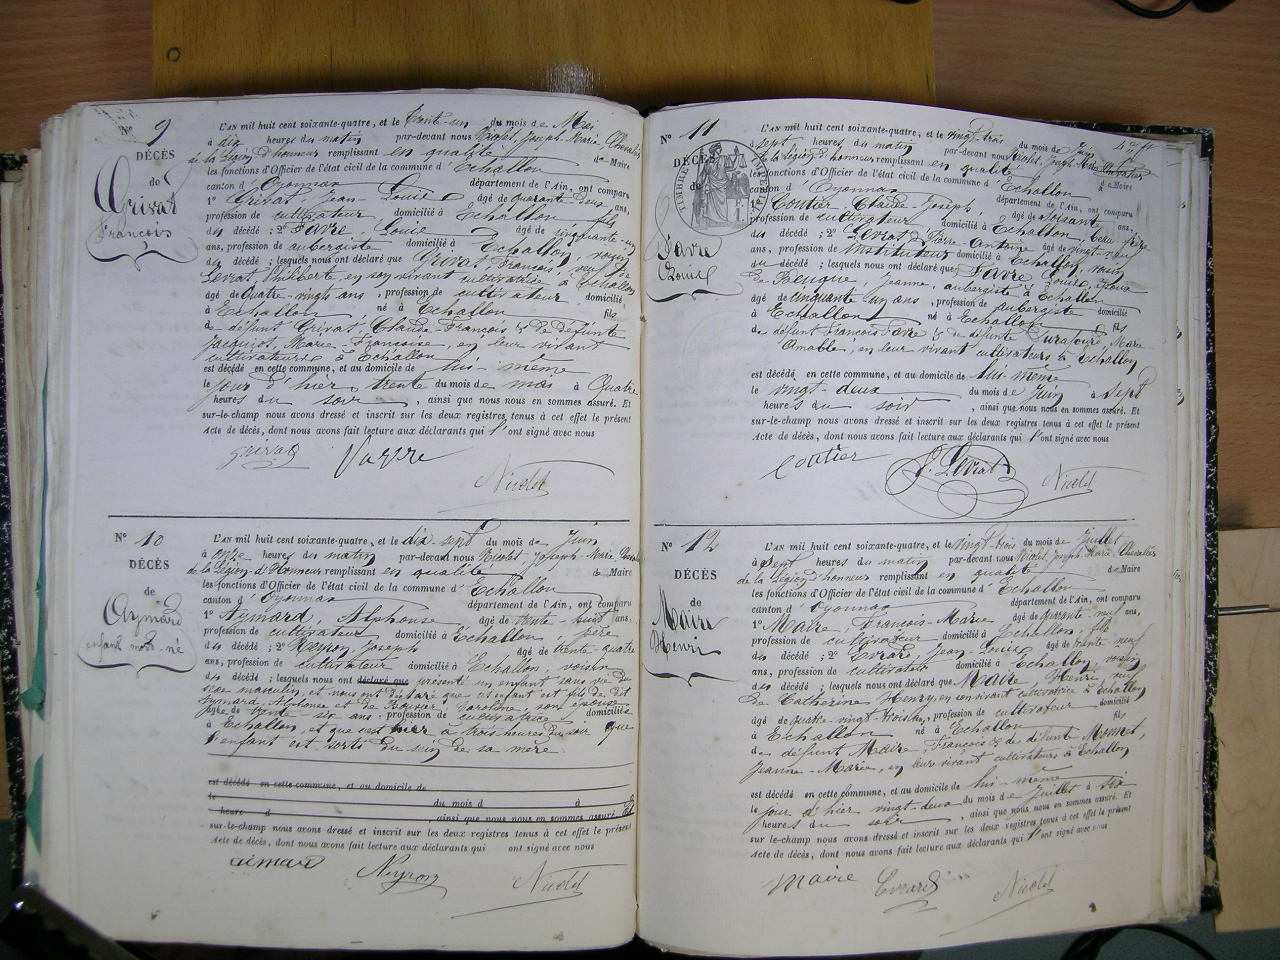 N° 9
DÉCÈS
de
Grivat
François
L'AN mil huit cent soixante-quatre, et le trente-un du mois de Mai
à dix heures du matin par-devant nous Nicolet, Joseph Marie Chevalier
de la Légion d'honneur remplissant en qualité de Maire
les fonctions d'Officier de l'état civil de la commune d'Echallon
canton d'Oyonnax département de l'Ain, ont comparu
1° Grivat, Jean Louis âgé de quarante deux ans,
profession de cultivateur domicilié à Echallon fils
du décédé ; 2° Favre, Louis âgé de cinquante-un
ans, profession de aubergiste domicilié à Echallon, voisin
du décédé ; lesquels nous ont déclaré que Grivat, François, veuf de
Levrat, Philiberte, en son vivant cultivatrice à Echallon
âgé de quatre-vingts ans, profession de cultivateur domicilié
à Echallon né à Echallon fils
de défunt Grivat, Claude François & de défunte
Jacquiot, Marie-Françoise, en leur vivant
cultivateurs à Echallon
est décédé en cette commune, et au domicile de lui-même
le jour d'hier, trente du mois de mai à quatre
heures du soir, ainsi que nous nous en sommes assuré. Et
sur-le-champ nous avons dressé et inscrit sur les deux registres tenus à cet effet le présent
Acte de décès, dont nous avons fait lecture aux déclarants qui l'ont signé avec nous
Grivat Favre
Nicolet
N° 10
DÉCÈS
de
Aymard
enfant mort-né
L'AN mil huit cent soixante-quatre, et le dix-sept du mois de Juin
à onze heures du matin par-devant nous Nicolet Joseph Marie Chevalier
de la Légion d'Honneur remplissant en qualité de Maire
les fonctions d'Officier de l'état civil de la commune d'Echallon
canton d'Oyonnax département de l'Ain, ont comparu
1° Aymard, Alphonse âgé de trente huit ans,
profession de cultivateur domicilié à Echallon, père
du décédé ; 2° Joseph âgé de trente-quatre
ans, profession de cultivateur domicilié à Echallon, voisin
du décédé ; lesquels nous ont déclaré que présenté un enfant sans vie du
sexe masculin, et nous ont déclaré que cet enfant est fils de dit
Aymard, Alphonse et de Caroline, son épouse
âgée de trente six ans, profession de cultivatrice domiciliée
à Echallon, et que c'est hier à trois heures du soir que
l'enfant est sorti du sein de sa mère
est décédé en cette commune, et au domicile de
le du mois d à
heure d ainsi que nous nous en sommes assuré. Et
sur-le-champ nous avons dressé et inscrit sur les deux registres tenus à cet effet le présent
Acte de décès, dont nous avons fait lecture aux déclarants qui ont signé avec nous
aimard Neyron Nicolet
N° 11
DÉCÈS
de
Favre
Louis
L'AN mil huit cent soixante-quatre, et le vingt-trois du mois de Juin
à sept heures du matin par-devant nous Nicolet, Joseph Marie Chevalier
de la Légion d'honneur remplissant en qualité de Maire
les fonctions d'Officier de l'état civil de la commune d'Echallon
canton d'Oyonnax département de l'Ain, ont comparu
1° Coutier, Claude Joseph âgé de soixante ans,
profession de cultivateur domicilié à Echallon, beau frère
du décédé ; 2° Levrat, Pierre Antoine âgé de vingt-neuf
ans, profession de instituteur domicilié à Echallon, voisin
du décédé ; lesquels nous ont déclaré que Favre Louis, époux
de Jeanne, aubergiste à Echallon
âgé de cinquante un ans, profession de aubergiste domicilié
à Echallon né à Echallon fils
de défunt François Favre & de défunte Marie
Amable, en leur vivant cultivateurs à Echallon
est décédé en cette commune, et au domicile de lui-même
le vingt deux du mois de Juin à sept
heures du soir, ainsi que nous nous en sommes assuré. Et
sur-le-champ nous avons dressé et inscrit sur les deux registres tenus à cet effet le présent
Acte de décès, dont nous avons fait lecture aux déclarants qui l'ont signé avec nous
Coutier P. Levrat Nicolet
N° 12
DÉCÈS
de
Maire
Henri
L'AN mil huit cent soixante-quatre, et le vingt-trois du mois de Juillet
à sept heures du matin par-devant nous Nicolet, Joseph Marie Chevalier
de la Légion d'honneur remplissant en qualité de Maire
les fonctions d'Officier de l'état civil de la commune d'Echallon
canton d'Oyonnax département de l'Ain, ont comparu
1° Maire, François-Marie âgé de quarante neuf ans,
profession de cultivateur domicilié à Echallon, fils
du décédé ; 2° Evrard, Jean-Louis âgé de trente neuf
ans, profession de cultivateur domicilié à Echallon voisin
du décédé ; lesquels nous ont déclaré que Maire, Henri veuf
de Catherine Henry, en son vivant cultivatrice à Echallon
âgé de quatre-vingt-trois ans, profession de cultivateur domicilié
à Echallon né à Echallon fils
de défunt Maire, François & de défunte Momet,
Jeanne-Marie, en leur vivant cultivateurs à Echallon
est décédé en cette commune, et au domicile de lui-même
le jour d'hier vingt-deux du mois de Juillet à six
heures du soir, ainsi que nous nous en sommes assuré. Et
sur-le-champ nous avons dressé et inscrit sur les deux registres tenus à cet effet le présent
Acte de décès, dont nous avons fait lecture aux déclarants qui l'ont signé avec nous
Maire Evrard Nicolet